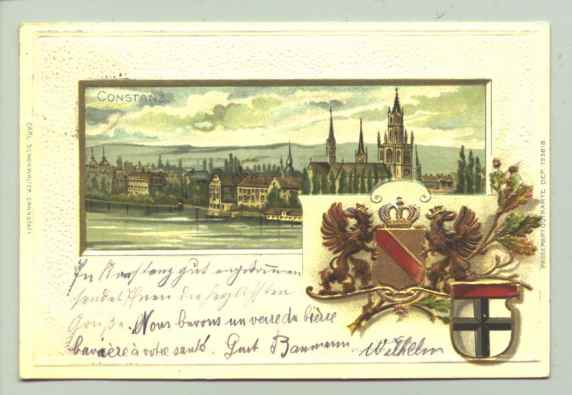 CONSTANZ
In Konstanz gut angekommen
sendet Ihnen die herzlichsten
Grüße. Nous buvons un verre de bière
bavaroise à votre santé. Gust Baumann. Wilhelm
PASSEPARTOUTKARTE DEP. 15381 B